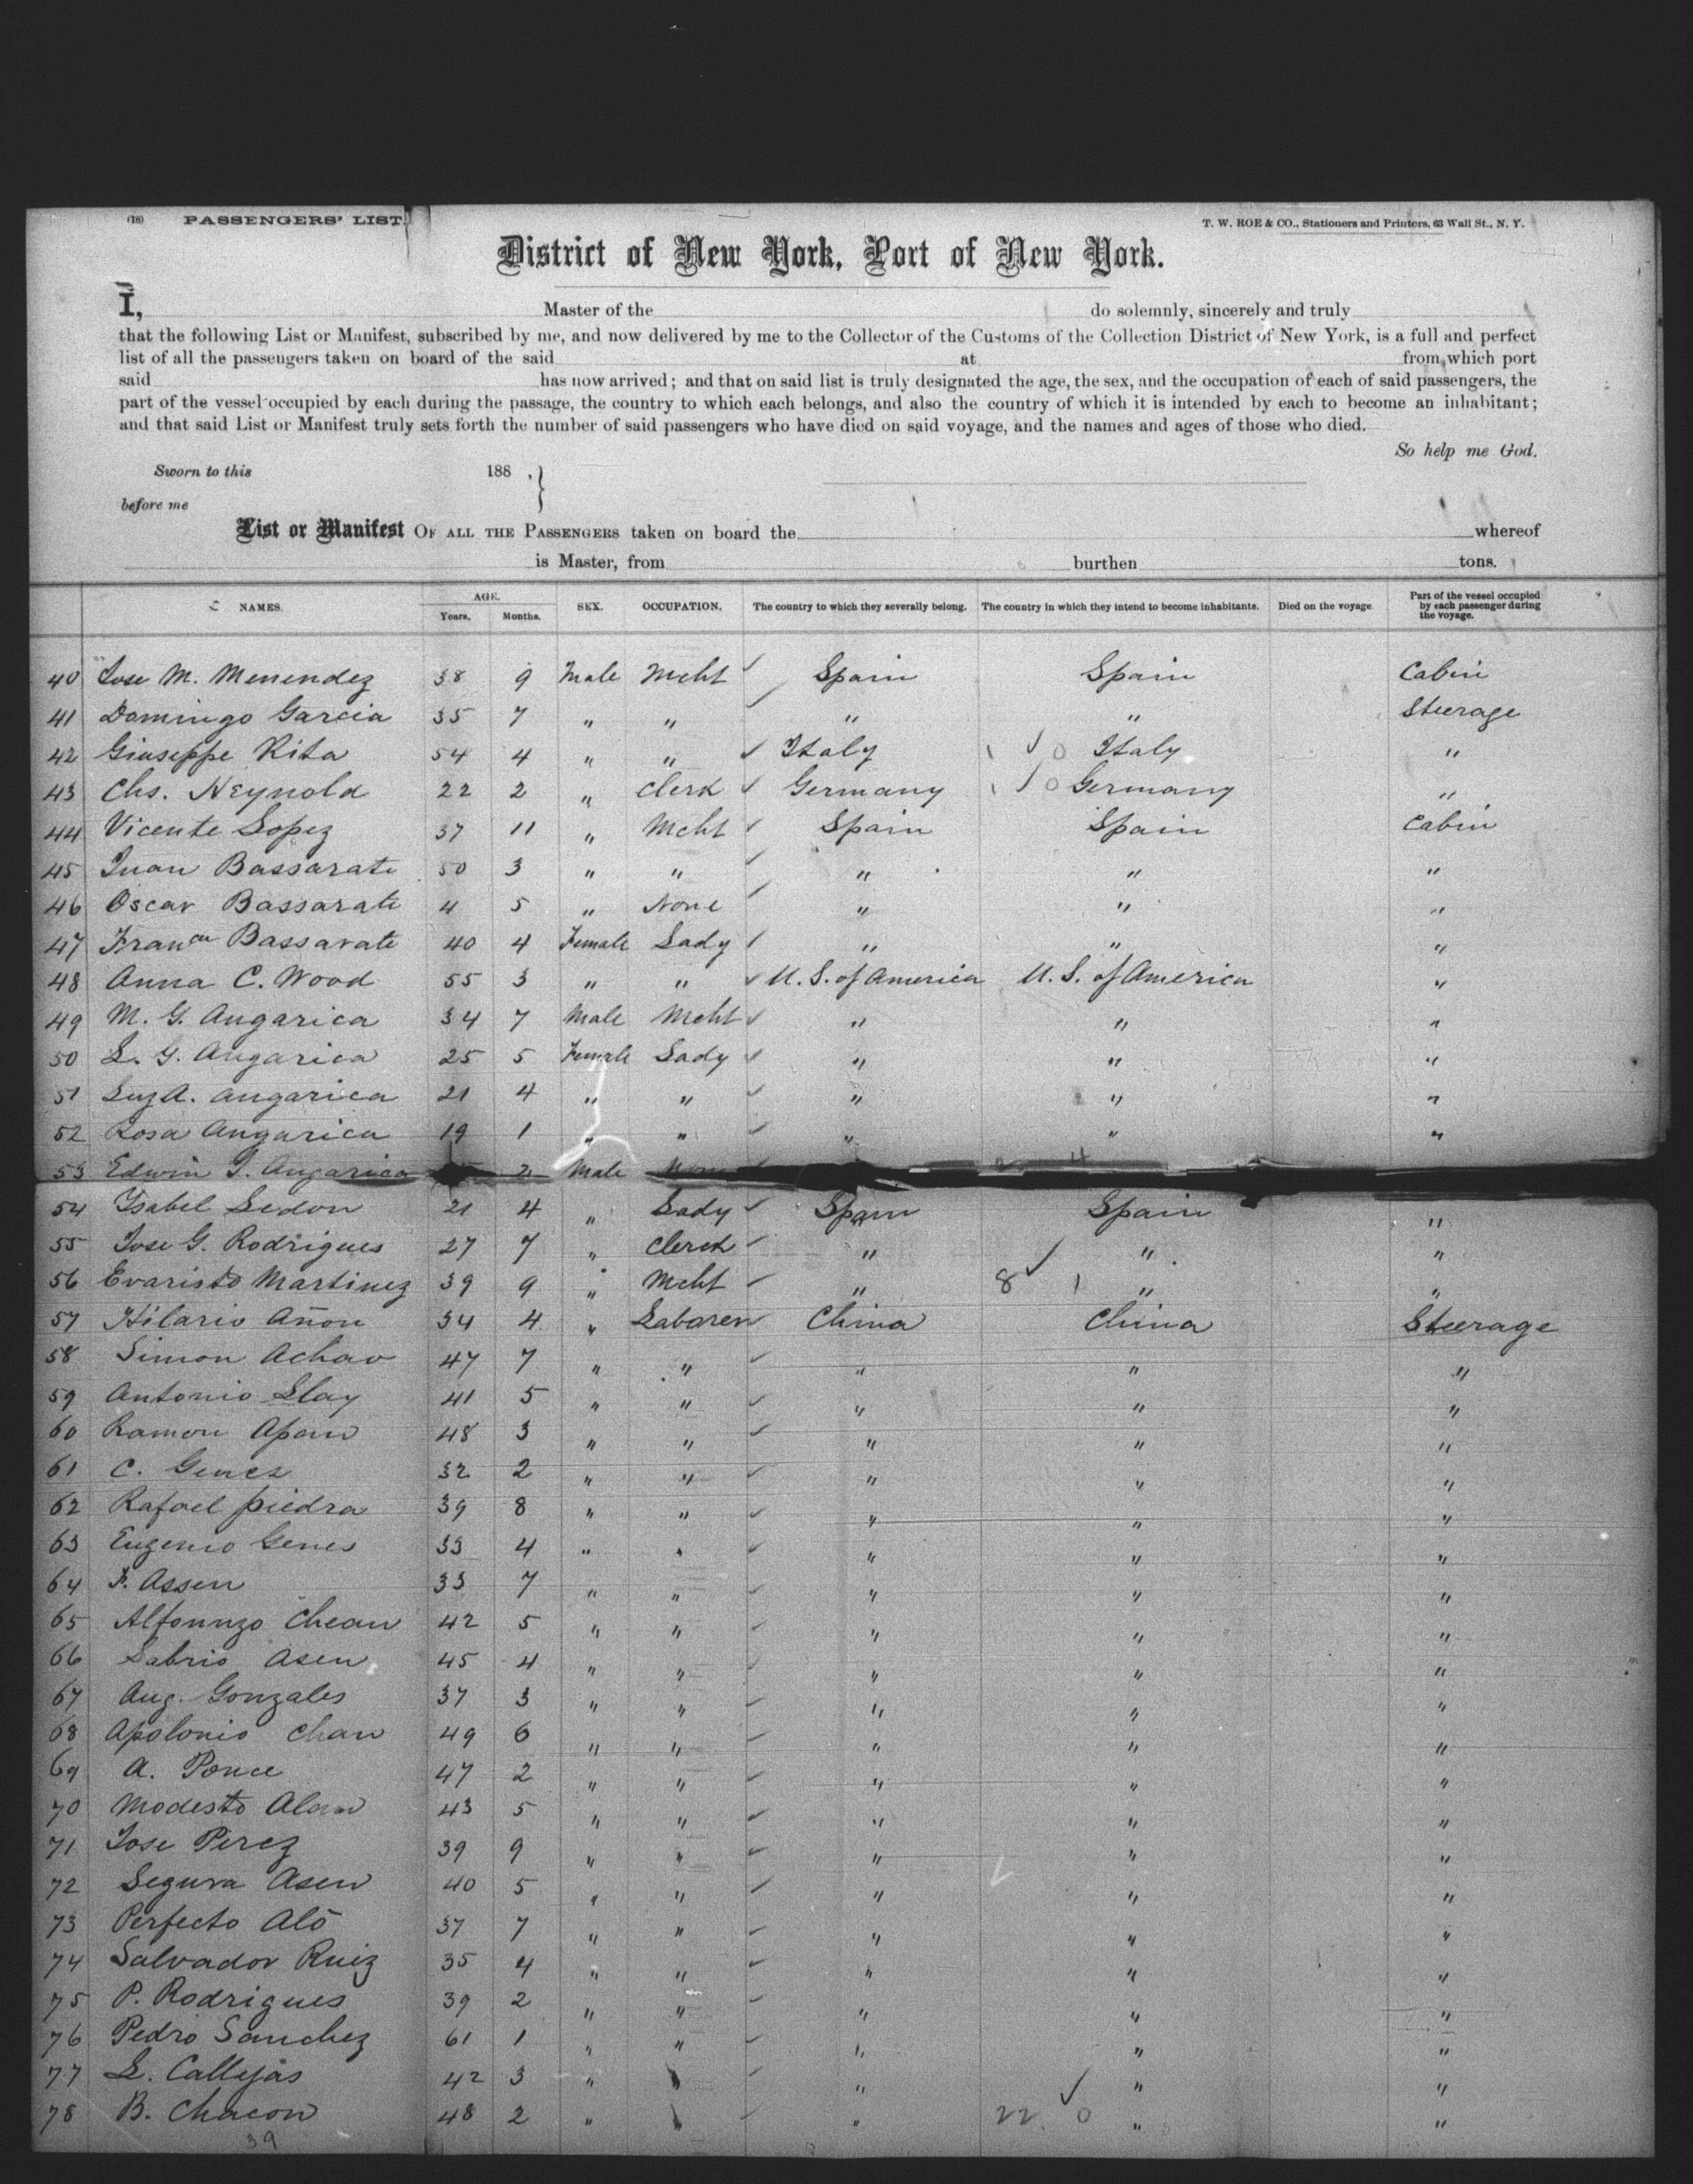 (18) PASSENGERS' LIST. T. W. ROE & CO., Stationers and Printers, 63 Wall St., N. Y.
District of New York, Port of New York.
I, Master of the do solemnly, sincerely and truly
that the following List or Manifest, subscribed by me, and now delivered by me to the Collector of the Customs of the Collection District of New York, is a full and perfect
list of all the passengers taken on board of the said at from which port
said has now arrived; and that on said list is truly designated the age, the sex, and the occupation of each of said passengers, the
part of the vessel occupied by each during the passage, the country to which each belongs, and also the country of which it is intended by each to become an inhabitant;
and that said List or Manifest truly sets forth the number of said passengers who have died on said voyage, and the names and ages of those who died.
So help me God.
Sworn to this 188 , }
before me
List or Manifest OF ALL THE PASSENGERS taken on board the whereof
is Master, from burthen tons.
NAMES. AGE. Years. Months. SEX. OCCUPATION. The country to which they severally belong. The country in which they intend to become inhabitants. Died on the voyage. Part of the vessel occupied by each passenger during the voyage.
40 Jose M. Menendez 38 9 Male Mcht ✓ Spain Spain Cabin
41 Domingo Garcia 35 7 " " ✓ " " Steerage
42 Giuseppe Rita 54 4 " " ✓ Italy ✓ 0 Italy "
43 Chs. Heynold 22 2 " Clerk ✓ Germany ✓ 0 Germany "
44 Vicente Lopez 37 11 " Mcht ✓ Spain Spain Cabin
45 Juan Bassarate 50 3 " " ✓ " " "
46 Oscar Bassarate 4 5 " None ✓ " " "
47 Franca Bassarate 40 4 Female Lady ✓ " " "
48 Anna C. Wood 55 3 " " ✓ U. S. of America U. S. of America "
49 M. G. Angarica 34 7 Male Mcht ✓ " " "
50 L. G. Angarica 25 5 Female Lady ✓ " " "
51 Luz A. Angarica 21 4 " " ✓ " " "
52 Rosa Angarica 19 1 " " ✓ " " "
53 Edwin G. Angarica 2 Male None
54 Ysabel Ledon 21 4 " Lady ✓ Spain Spain "
55 Jose G. Rodrigues 27 7 " Clerck ✓ " ✓ " "
56 Evaristo Martinez 39 9 " Mcht ✓ " 8 1 " "
57 Hilario Añon 34 4 " Laborer ✓ China China Steerage
58 Simon Achao 47 7 " " ✓ " " "
59 Antonio Slay 41 5 " " ✓ " " "
60 Ramon Apan 48 3 " " ✓ " " "
61 C. Genes 32 2 " " ✓ " " "
62 Rafael piedra 39 8 " " ✓ " " "
63 Eugenio Genes 33 4 " " ✓ " " "
64 F. Assen 33 7 " " ✓ " " "
65 Alfonnzo Chean 42 5 " " ✓ " " "
66 Sabrio Asen 45 4 " " ✓ " " "
67 Aug. Gonzales 37 3 " " ✓ " " "
68 Apolonio Chan 49 6 " " ✓ " " "
69 A. Ponce 47 2 " " ✓ " " "
70 Modesto Alan 43 5 " " ✓ " " "
71 Jose Perez 39 9 " " ✓ " " "
72 Segura Asen 40 5 " " ✓ " ✓ " "
73 Perfecto Aló 37 7 " " ✓ " " "
74 Salvador Ruiz 35 4 " " ✓ " " "
75 P. Rodrigues 39 2 " " ✓ " " "
76 Pedro Sanchez 61 1 " " ✓ " " "
77 L. Callejas 42 3 " " ✓ " ✓ " "
78 B. Chacon 48 2 " " ✓ " 22 0 " "
39